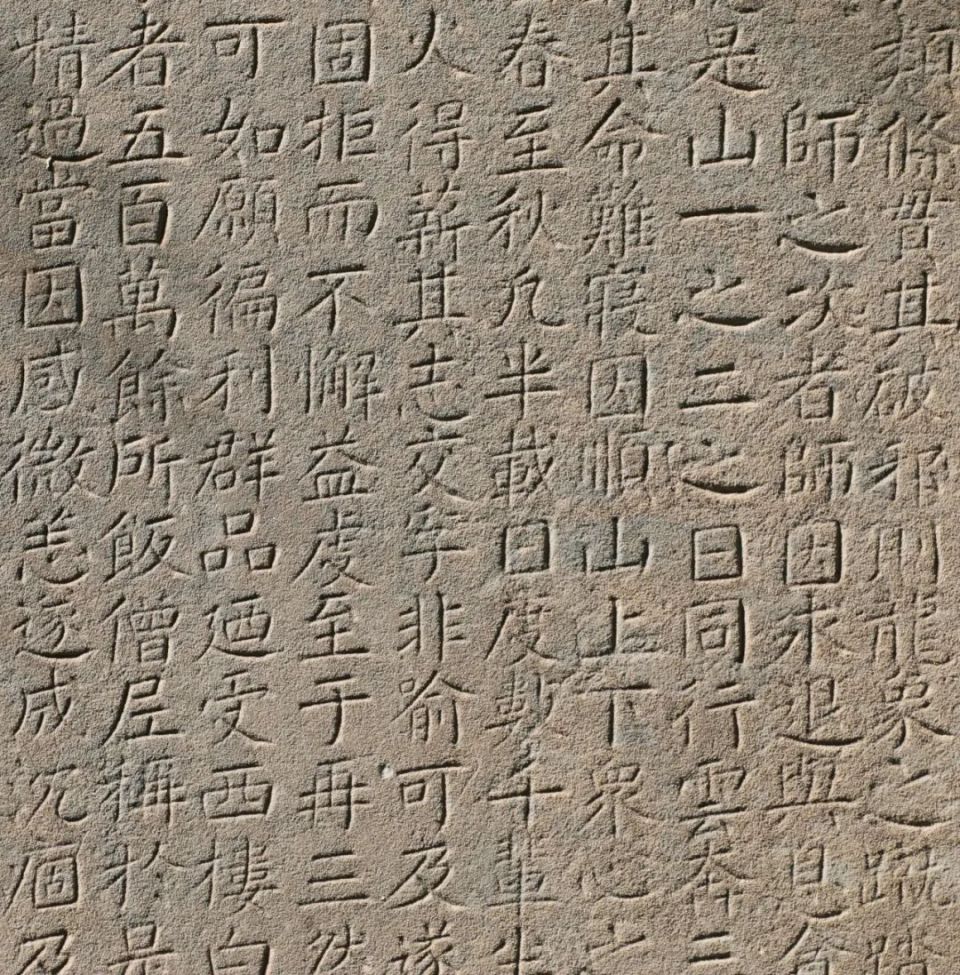 條昔其破邪則龍象之蹴踏
師之次者師因未退與
是山一之二之日同行雲本二
其命難寢因順山上下眾心之
春至秋凡半載日度數千輩
火得薪其志交牢非喻可及遂
固拒而不懈益虔至于再三然
可如願徧利群品廼受西樓白
者五百萬餘所飯僧尼稱於是
情過當因感微恙遂成沉痼乃